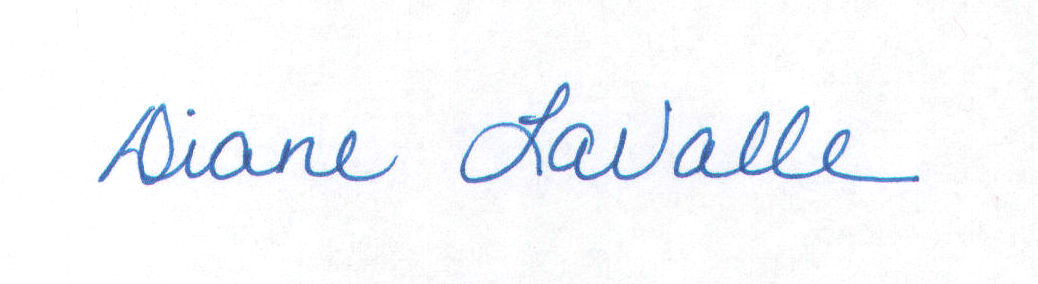 Diane LaValle